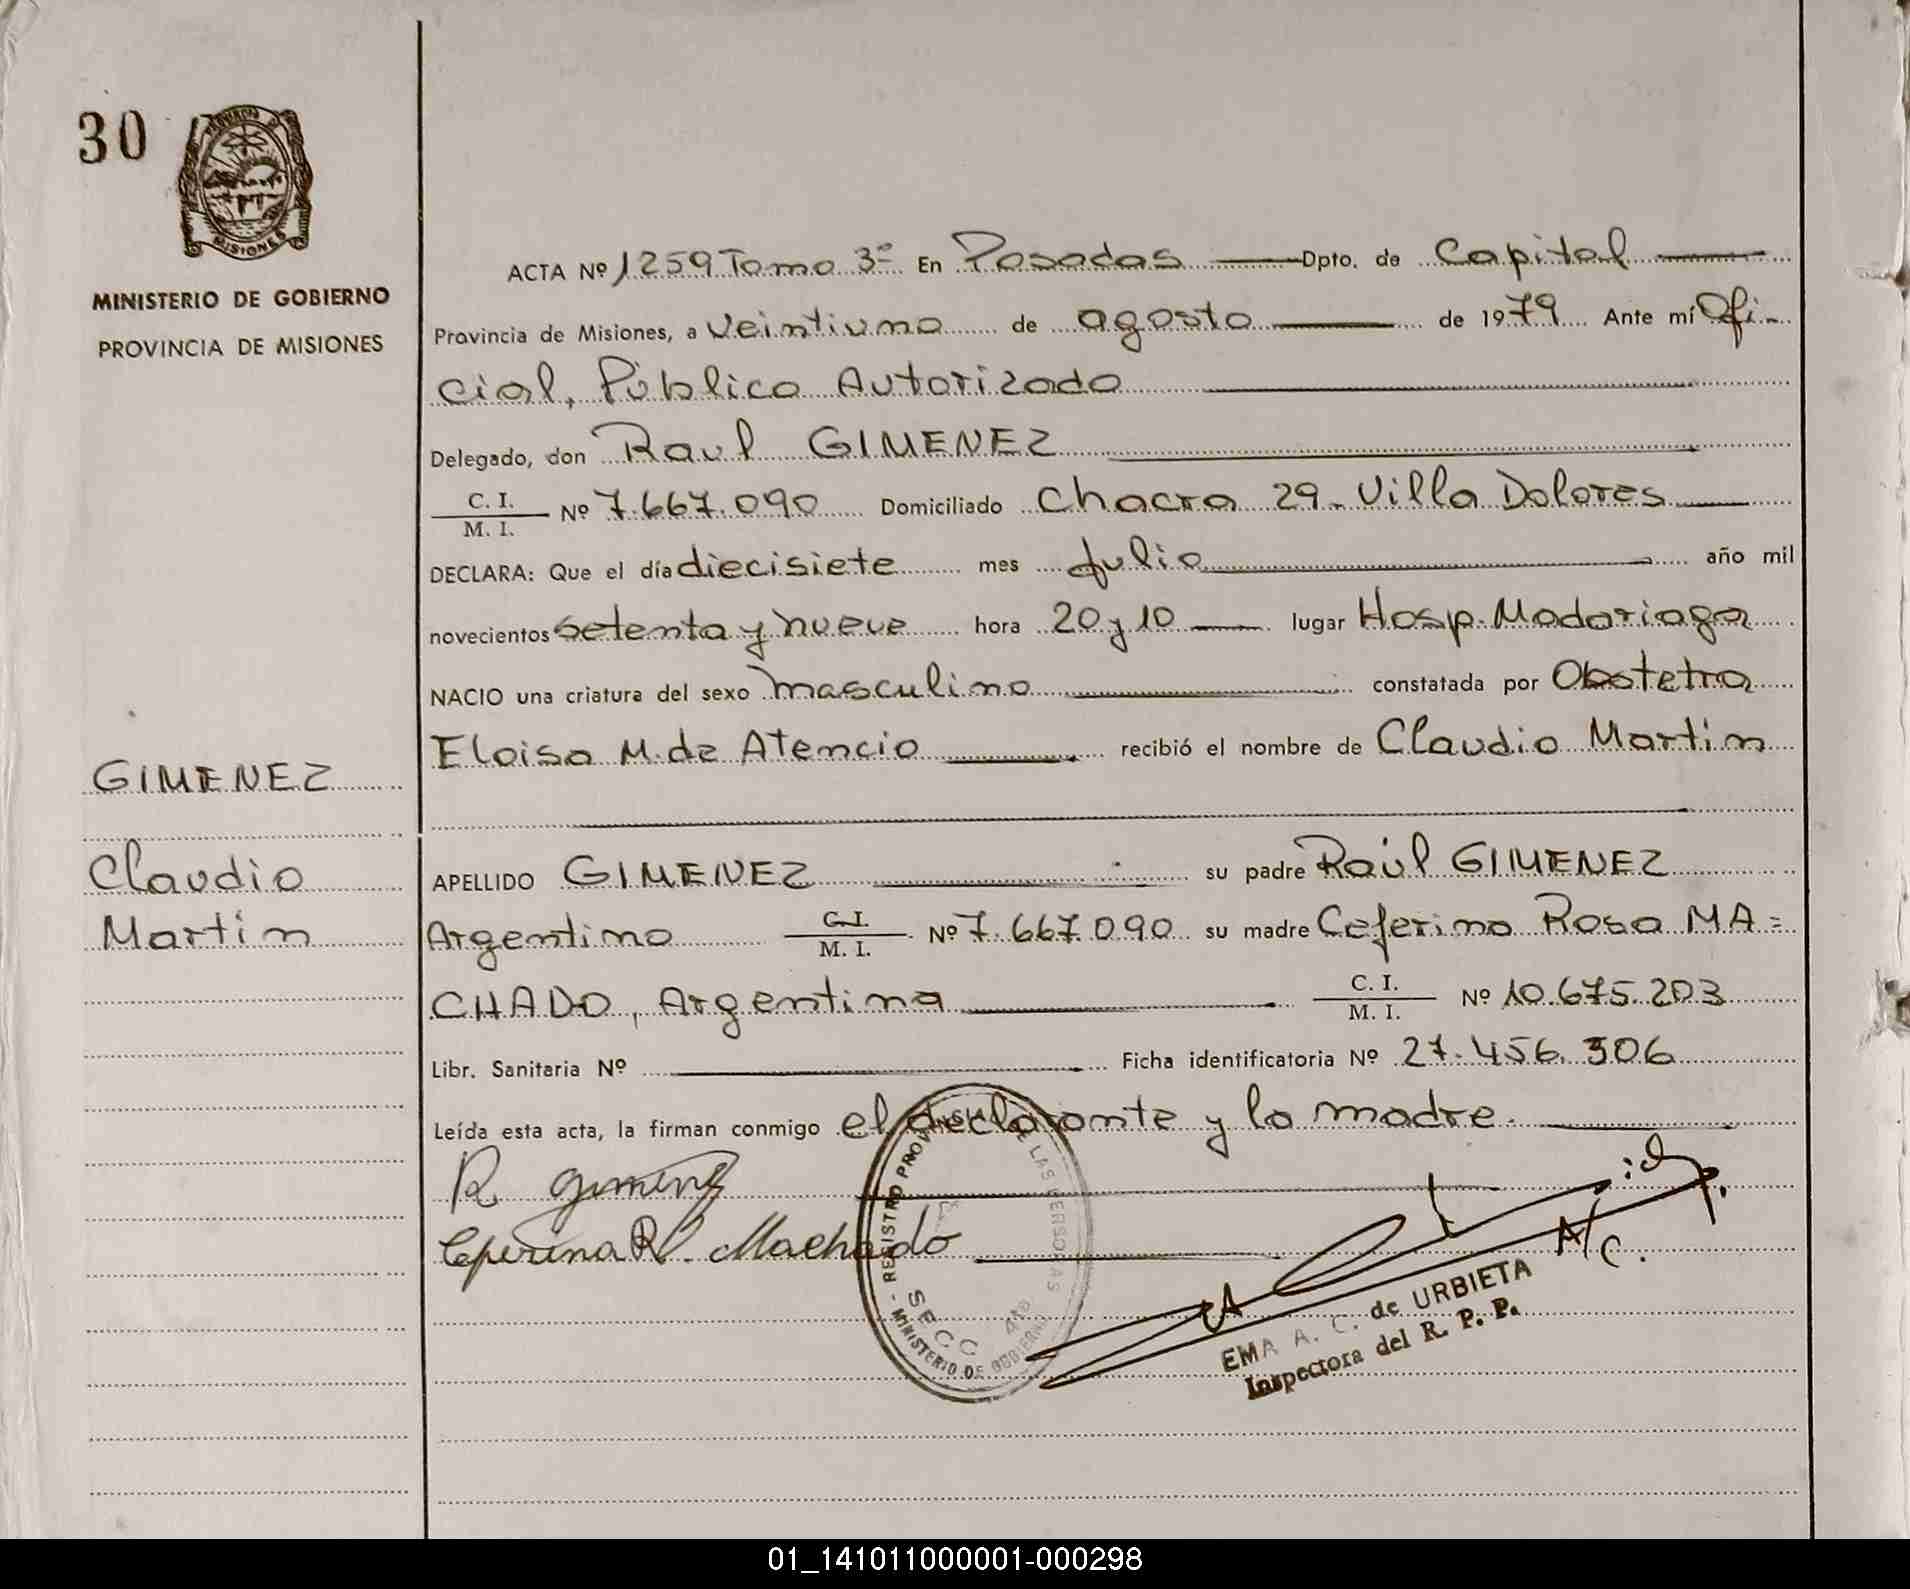 30
PROVINCIA DE
MISIONES
MINISTERIO DE GOBIERNO
PROVINCIA DE MISIONES
GIMENEZ
Claudio
Martin
ACTA Nº 1259 Tomo 3º En Posadas Dpto. de Capital
Provincia de Misiones, a veintiuno de agosto de 1979 Ante mí Ofi-
cial, Público Autorizado
Delegado, don Raul GIMENEZ
C. I.
M. I. Nº 7.667.090 Domiciliado Chacra 29- Villa Dolores
DECLARA: Que el día diecisiete mes Julio año mil
novecientos setenta y nueve hora 20 y 10 lugar Hosp. Madariaga
NACIO una criatura del sexo masculino constatada por Obstetra
Eloisa M. de Atencio recibió el nombre de Claudio Martin
APELLIDO GIMENEZ su padre Raúl GIMENEZ
Argentino C. I.
M. I. Nº 7.667.090 su madre Ceferina Rosa MA=
CHADO, Argentina C. I.
M. I. Nº 10.675.203
Libr. Sanitaria Nº Ficha identificatoria Nº 27.456.306
Leída esta acta, la firman conmigo el declarante y la madre.
R. Gimenez
Ceferina R. Machado
REGISTRO PROVINCIAL DE LAS PERSONAS
SECC
MINISTERIO DE GOBIERNO
A/C.
EMA A. C. de URBIETA
Inspectora del R. P. P.
01_141011000001-000298